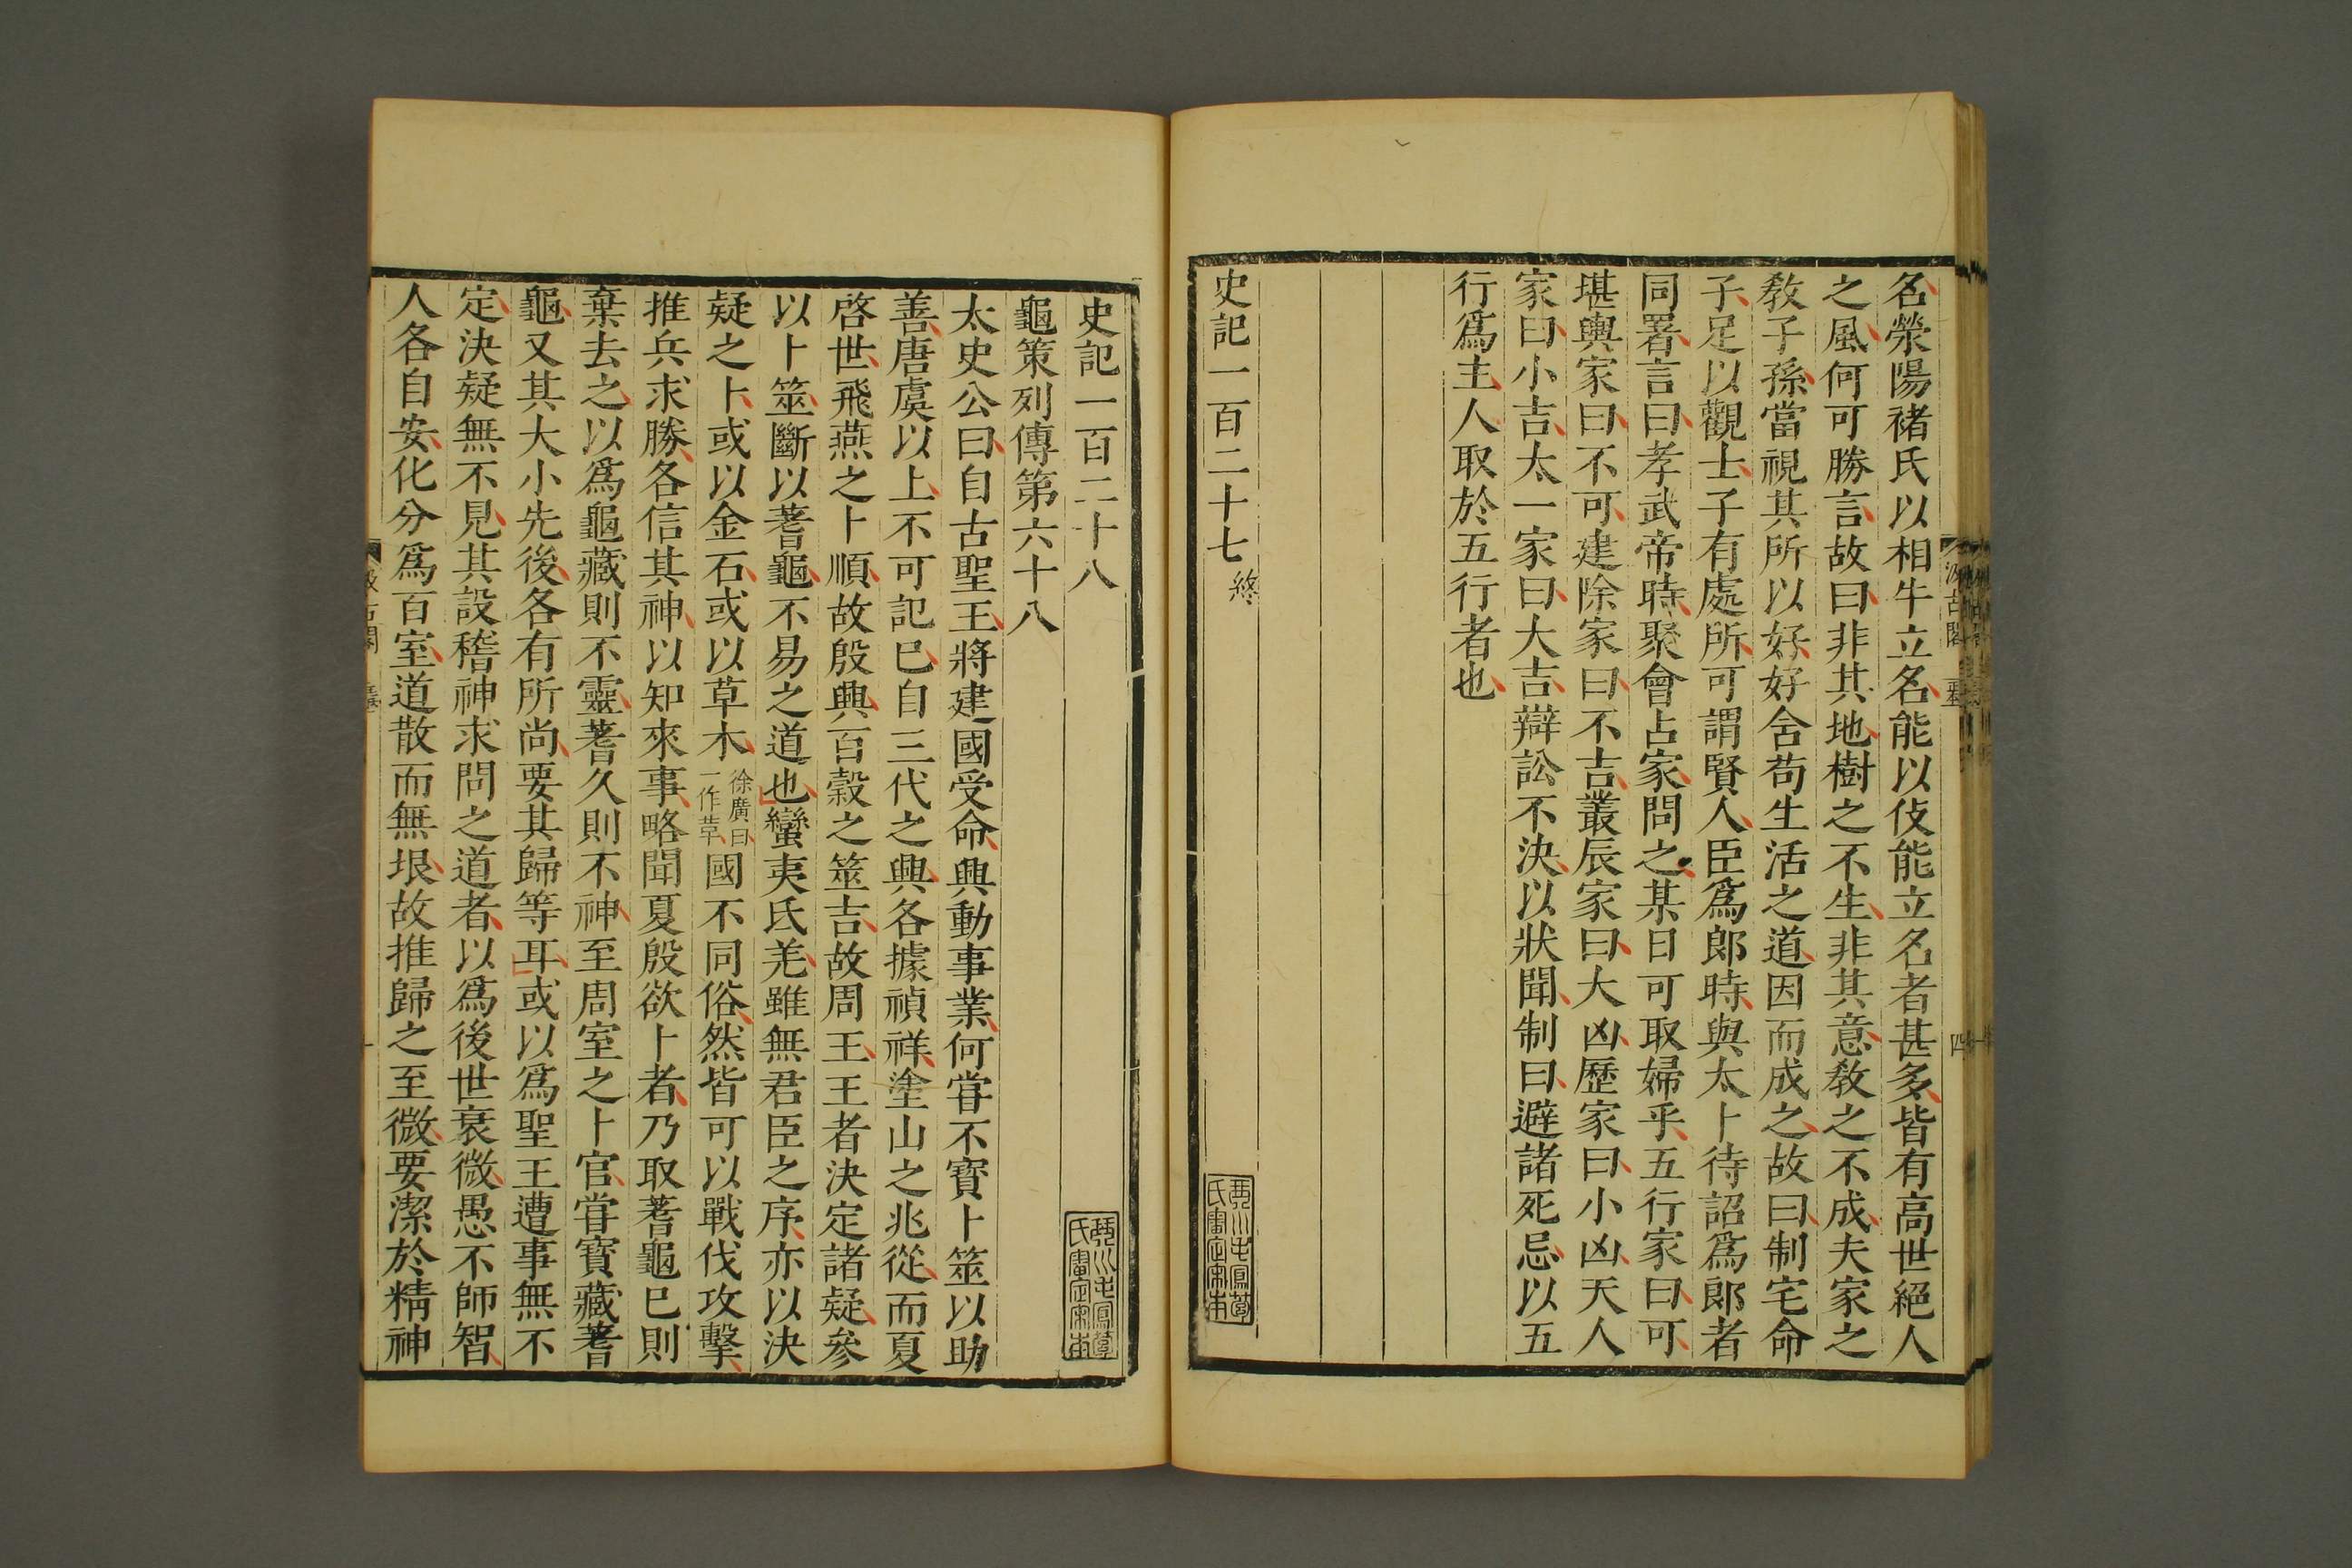 名滎陽褚氏以相牛立名能以伎能立名者甚多皆有高世絕人
之風何可勝言故曰非其地樹之不生非其意敎之不成夫家之
敎子孫當視其所以好好含苟生活之道因而成之故曰制宅命
子足以觀士子有處所可謂賢人臣爲郎時與太卜待詔爲郎者
同署言曰孝武帝時聚會占家問之某日可取婦乎五行家曰可
堪輿家曰不可建除家曰不吉叢辰家曰大凶歷家曰小凶天人
家曰小吉太一家曰大吉辯訟不決以狀聞制曰避諸死忌以五
行爲主人取於五行者也
史記一百二十七終
史記一百二十八
龜策列傳第六十八
太史公曰自古聖王將建國受命興動事業何嘗不寶卜筮以助
善唐虞以上不可記已自三代之興各據禎祥塗山之兆從而夏
啓世飛燕之卜順故殷興百穀之筮吉故周王王者決定諸疑參
以卜筮斷以蓍龜不易之道也蠻夷氐羌雖無君臣之序亦以決
疑之卜或以金石或以草木徐廣曰一作革國不同俗然皆可以戰伐攻擊
推兵求勝各信其神以知來事略聞夏殷欲卜者乃取蓍龜已則
棄去之以爲龜藏則不靈蓍久則不神至周室之卜官嘗寶藏蓍
龜又其大小先後各有所尚要其歸等耳或以爲聖王遭事無不
定決疑無不見其設稽神求問之道者以爲後世衰微愚不師智
人各自安化分爲百室道散而無垠故推歸之至微要潔於精神